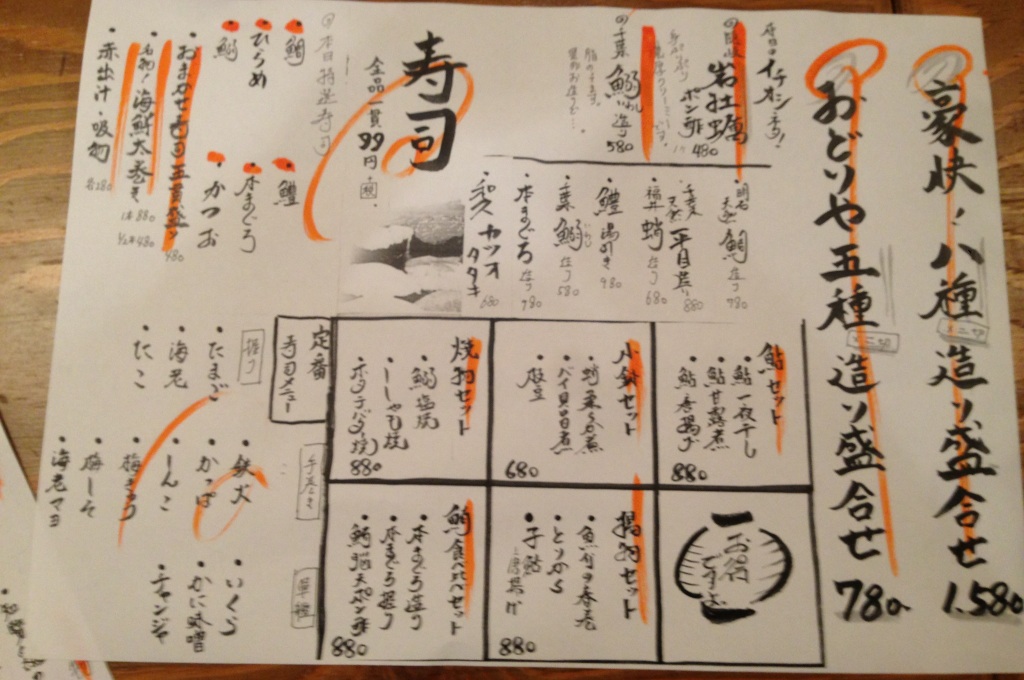 豪快!八種 造り盛合せ 1.580
おどりや五種 造り盛合せ 780
一二切
一二切
本日のイチオシネタ!
岩牡蠣
ポン酢 480
千葉 鰯 造り 580
脂のってます。
明石
天然 鯛 造り 780
千葉
天然 平目 造り 880
福井 蛸 造り 680
鱧 湯引き 980
千葉 鰯 造り 580
本まぐろ 造り 780
カツオ
タタキ 680
寿司
全品一貫99円
税
◎本日特選寿司
・鯛
・ひらめ
・鰯
・鱧
・本まぐろ
・かつお
・おまかせ寿司五貫盛り 980
・名物!海鮮太巻き 1本 880
1/2本 480
・赤出汁・吸物 各280
鮎セット
・鮎一夜干し
・鮎甘露煮
・鮎唐揚げ
880
小鉢セット
・蛸柔らか煮
・バイ貝旨煮
680
焼物セット
・鰯塩焼
・ししゃも焼
・ホタテバター焼
880
揚物セット
・とりから
・子鮎
880
鮪食べ比べセット
・本まぐろ造り
・本まぐろ握り
・鮪脳天ポン酢
880
定番
寿司メニュー
握り
・たまご
・海老
・たこ
手巻き
・鉄火
・かっぱ
・しんこ
・梅きゅう
・梅しそ
・海老マヨ
軍艦
・いくら
・かに味噌
・チャンジャ